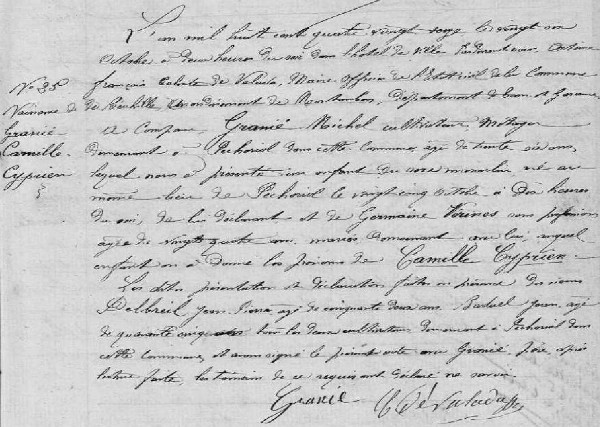 L'an mil huit cent quatre vingt onze le vingt six
Octobre à deux heures du soir dans l'hôtel de ville Pardevant nous Antoine
François Calixte de Valada, Maire Officier de l'Etat Civil de la Commune
de Arrondissement de Département de Tarn et Garonne
A Comparu, Granié Michel cultivateur, Métayer
demeurant à Pechoriol dans cette Commune, âgé de trente six ans,
lequel nous a présenté un enfant du sexe masculin né au
même lieu de Pechoriol le vingt cinq Octobre à Dix heures
du soir, de lui déclarant et de Germaine Vernes sans profession
âgée de vingt quatre ans, mariés demeurant avec lui, auquel
enfant on a donné les prénoms de Camille Cyprien
Les dites présentation et déclaration faites en présence des sieurs
Delbreil Jean Pierre âgé de cinquante deux ans Jean, âgé
de quarante cinq ans tous les deux cultivateurs demeurant à Pechoriol dans
cette commune, et avons signé le présent acte avec Granié Père, après
lecture faite, les témoins de ce requis ont déclaré ne savoir.
Granié C De Valada
No 35
Naissance de
Granié
Camille
Cyprien